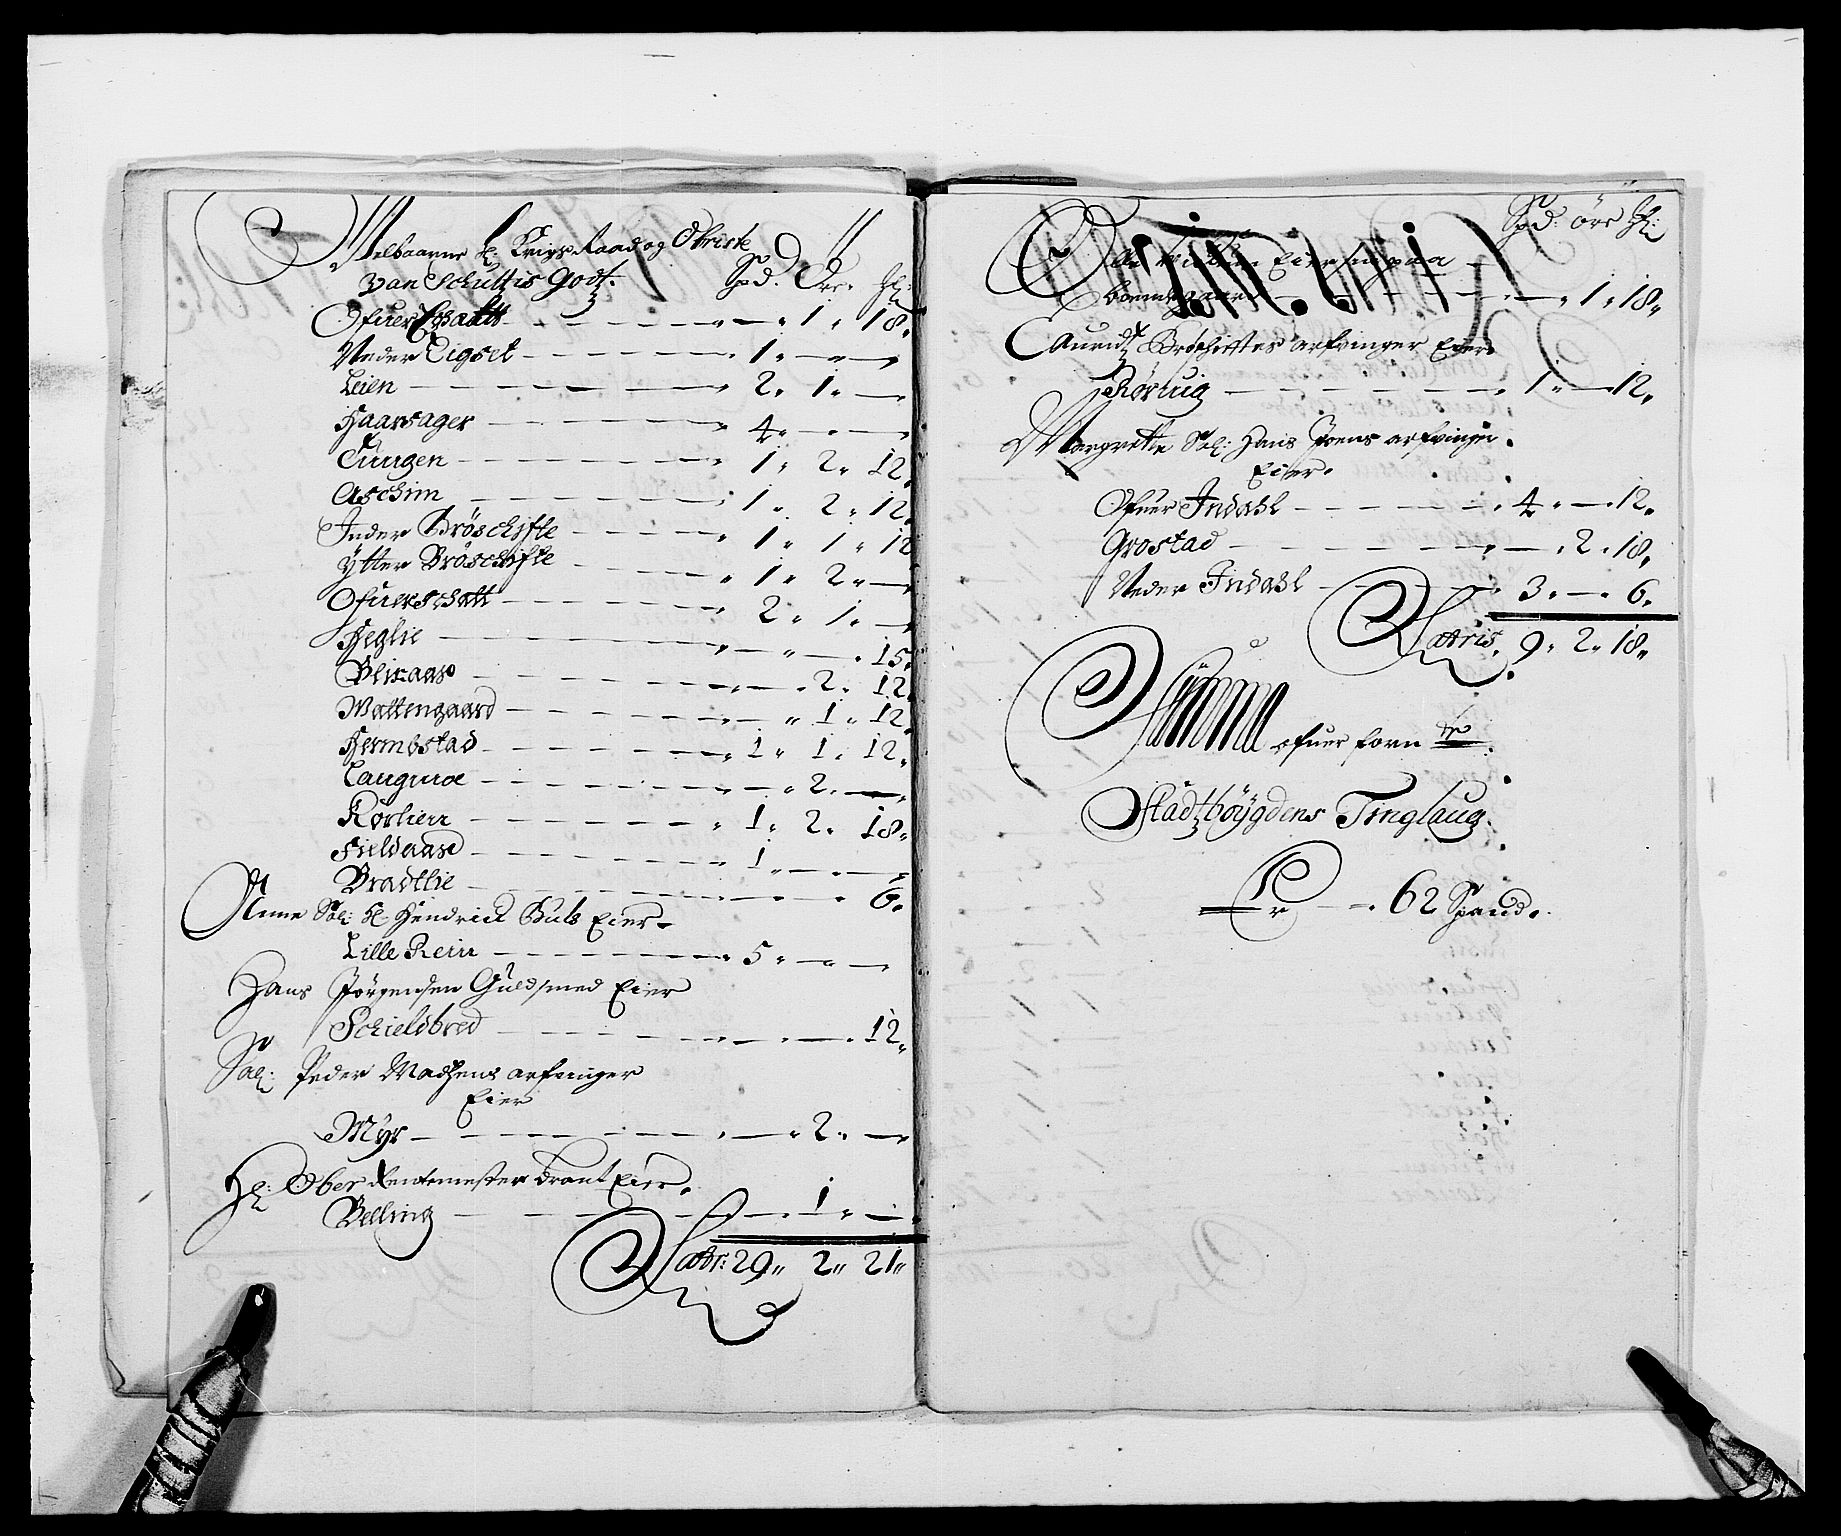 Welbaarne H: Krigs Raad og Obriste
van Schultzis godtz. Spd. Öre. Hl:
Ofuer Schatt - 1 " 18 "
Neder Eigset - 1 " - " -
Leien - 2 " 1 " -
Haarsager - 4 " - " -
Tungen - 1 " 2 " 12
Aschim - 1 " 2 " 12
Inder Bröschifte - 1 " 1 " 12
Ytter Bröschifte - 1 " 2 " -
Ofuer Schatt - 2 " 1 " -
Heglie - " - 15
Blixaas - 2 " 12
Wattengaard - " 1 " 12
Hermbstad - 1 " 1 " 12
Langmoe - " 2 " -
Rörlien - 1 " 2 " 18
Fieldaase - 1 " - " -
Bradtlie - 6
Anne Sal: H: Hendrick Buls Eier
Lille Rein - 5 " - " -
Hans Jörgensen Guldsmed Eier
Schieldbred - 12
Sal: Peder Madsens arfuinger
Eier
Myr - 2 " -
Hl: Ober Rentemester Brant Eier
Belling - 1 " -
Latr: 29 " 2 " 21 "
Spd: öre Hl:
Eier paa
- 1 " 18 "
Lauridtz Bröschiftes arfvinger Eier
Rörvig - 1 " - 12
Margrette Sal: Hans Joens arfvinger
Eier.
Ofuer Indahl - 4 " - 12
Grostad - 2 " 18
Neder Indahl - 3 " - 6
Latris 9 " 2 " 18 "
Summa ofuer forn
Stadtzböygdens Tinglaug.
Er - 62 Spand.